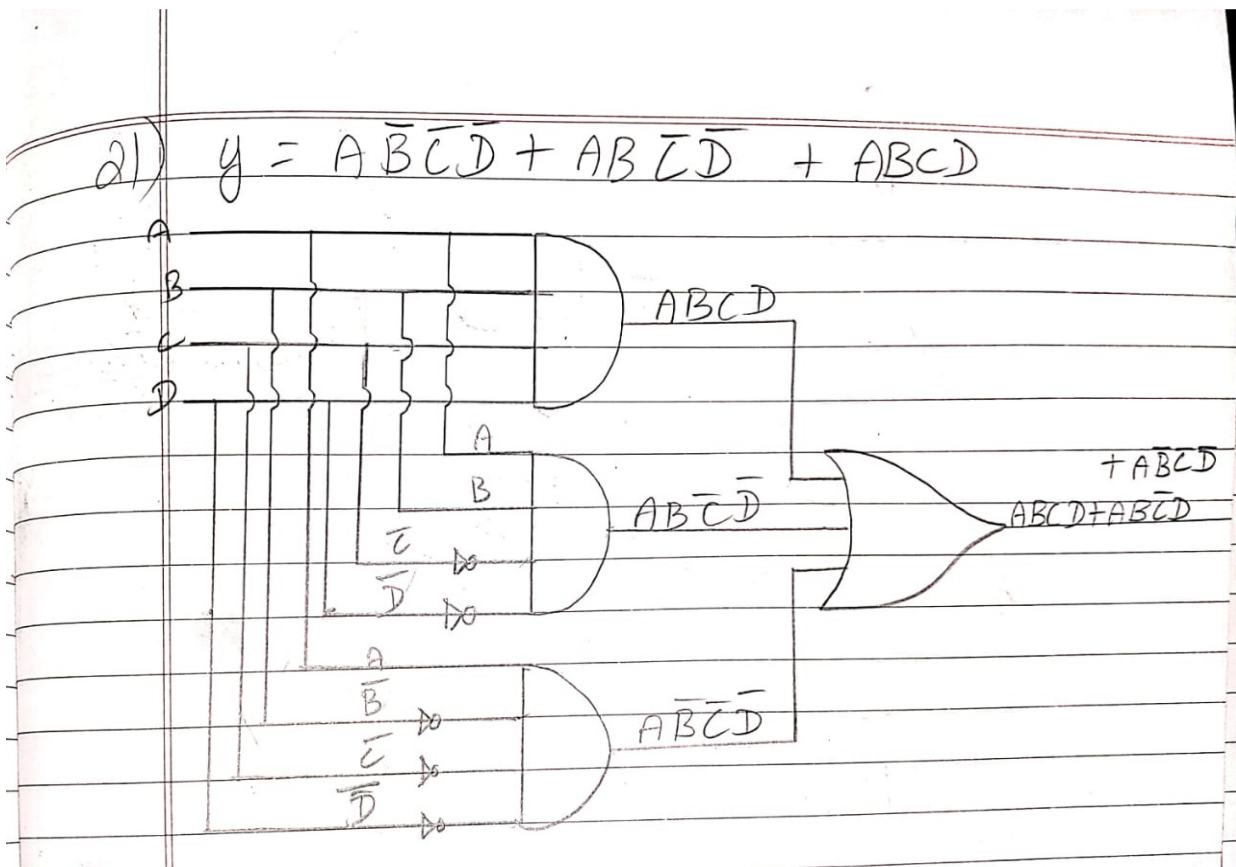 21) y = A B̅ C̅ D̅ + AB C̅ D̅ + ABCD
A
B
C
D
ABCD
A
B
C̅
D̅
AB C̅ D̅
+ A B̅ C̅ D̅
ABCD + AB C̅ D̅
A
B̅
C̅
D̅
A B̅ C̅ D̅